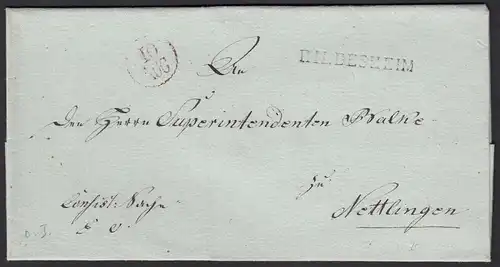 10
AUG
HILDESHEIM
An
den Herrn Superintendenten Walke
zu
Nettlingen
Consist: Sache